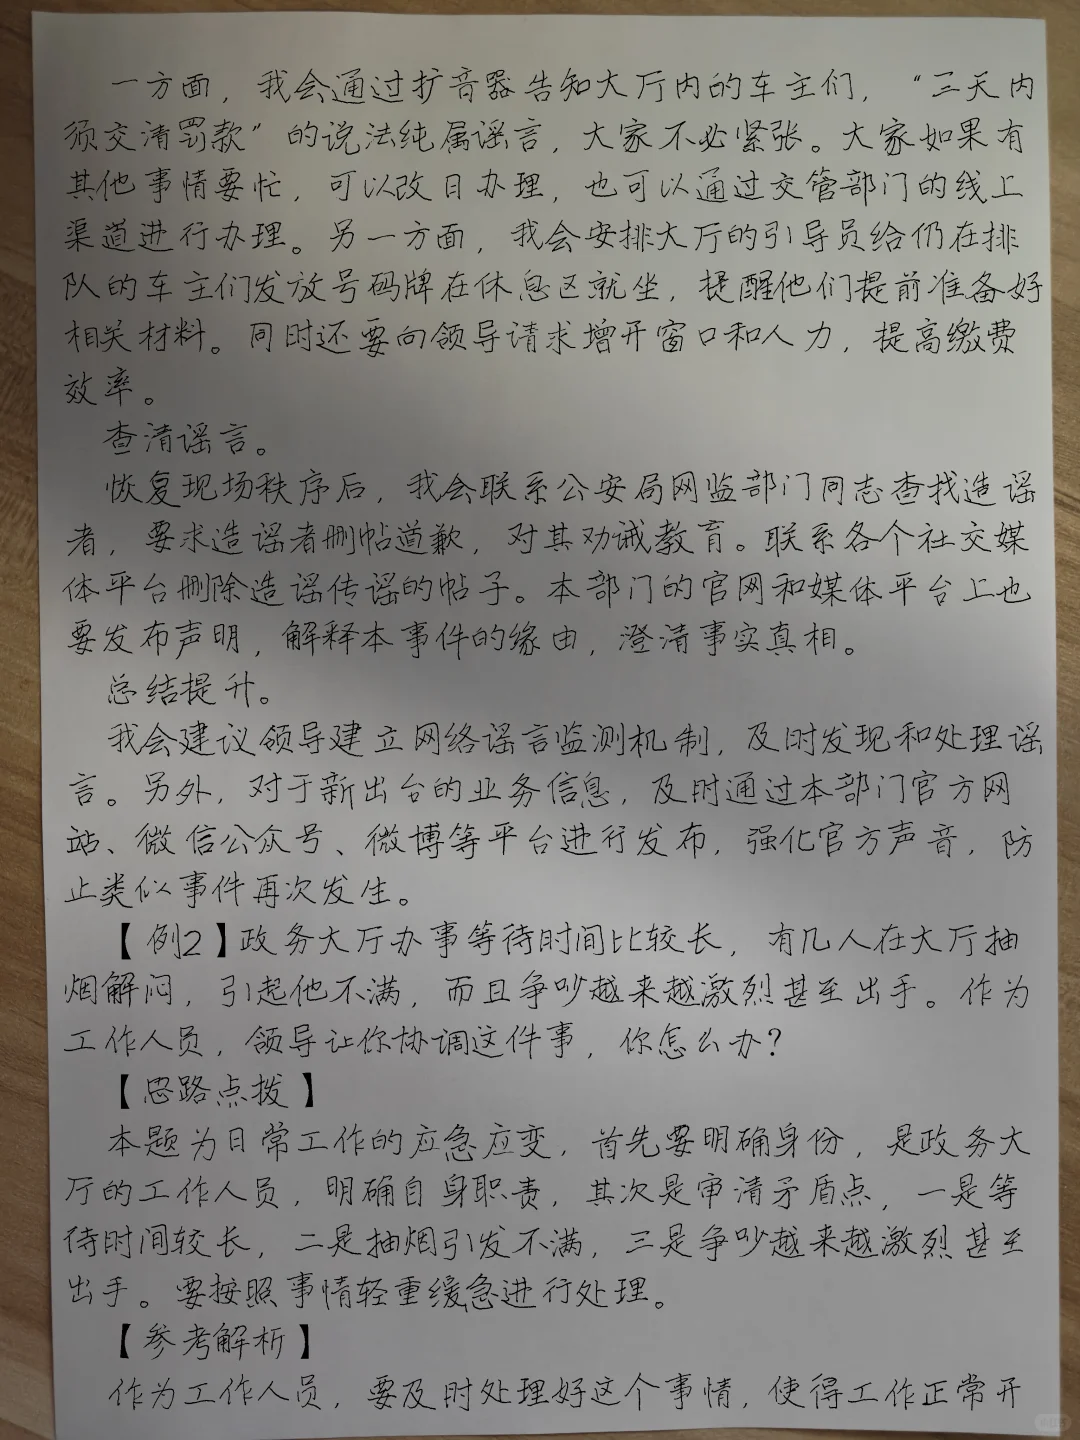 一方面，我会通过扩音器告知大厅内的车主们，“三天内
须交清罚款”的说法纯属谣言，大家不必紧张。大家如果有
其他事情要忙，可以改日办理，也可以通过交管部门的线上
渠道进行办理。另一方面，我会安排大厅的引导员给仍在排
队的车主们发放号码牌在休息区就坐，提醒他们提前准备好
相关材料。同时还要向领导请求增开窗口和人力，提高缴费
效率。
查清谣言。
恢复现场秩序后，我会联系公安局网监部门同志查找造谣
者，要求造谣者删帖道歉，对其劝诫教育。联系各个社交媒
体平台删除造谣传谣的帖子。本部门的官网和媒体平台上也
要发布声明，解释本事件的缘由，澄清事实真相。
总结提升。
我会建议领导建立网络谣言监测机制，及时发现和处理谣
言。另外，对于新出台的业务信息，及时通过本部门官方网
站、微信公众号、微博等平台进行发布，强化官方声音，防
止类似事件再次发生。
【例2】政务大厅办事等待时间比较长，有几人在大厅抽
烟解闷，引起他不满，而且争吵越来越激烈甚至出手。作为
工作人员，领导让你协调这件事，你怎么办？
【思路点拨】
本题为日常工作的应急应变，首先要明确身份，是政务大
厅的工作人员，明确自身职责，其次是审清矛盾点，一是等
待时间较长，二是抽烟引发不满，三是争吵越来越激烈甚至
出手。要按照事情轻重缓急进行处理。
【参考解析】
作为工作人员，要及时处理好这个事情，使得工作正常开